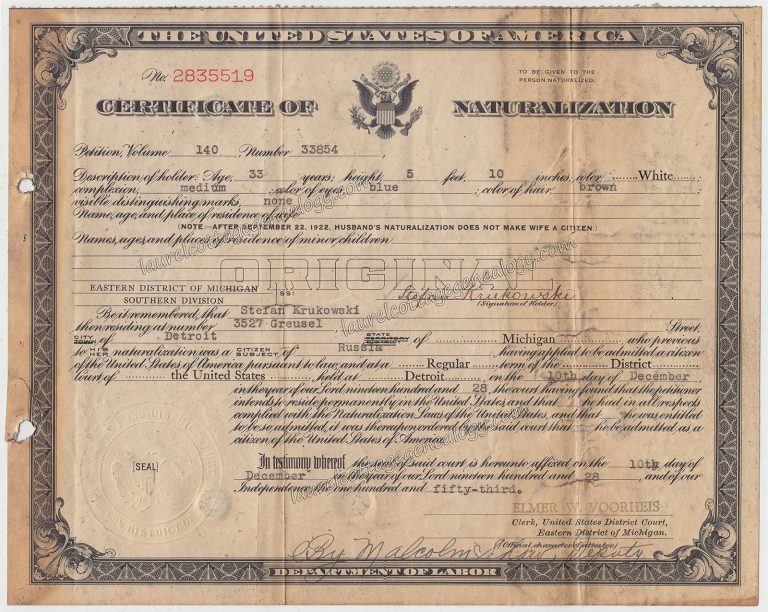 THE UNITED STATES OF AMERICA
No. 2835519
TO BE GIVEN TO THE
PERSON NATURALIZED.
CERTIFICATE OF NATURALIZATION
Petition, Volume 140 Number 33854
Description of holder: Age, 33 years; height, 5 feet, 10 inches; color, White;
complexion, medium; color of eyes, blue; color of hair, brown;
visible distinguishing marks, none
Name, age, and place of residence of wife
(NOTE: AFTER SEPTEMBER 22, 1922, HUSBAND'S NATURALIZATION DOES NOT MAKE WIFE A CITIZEN.)
Names, ages, and places of residence of minor children
ORIGINAL
EASTERN DISTRICT OF MICHIGAN
SOUTHERN DIVISION
ss:
Stefan Krukowski
(Signature of Holder)
Be it remembered, that Stefan Krukowski
then residing at number 3527 Greusel Street,
CITY TOWN of Detroit STATE of Michigan, who previous
to HIS HER naturalization was a CITIZEN SUBJECT of Russia, having applied to be admitted a citizen
of the United States of America pursuant to law, and at a Regular term of the District
Court of the United States held at Detroit, on the 10th day of December
in the year of our Lord nineteen hundred and 28 the court having found that the petitioner
intends to reside permanently in the United States, and that he had in all respects
complied with the Naturalization Laws of the United States, and that he was entitled
to be so admitted, it was thereupon ordered by the said court that he be admitted as a
citizen of the United States of America.
In testimony whereof the seal of said court is hereunto affixed on the 10th day of
December in the year of our Lord nineteen hundred and 28, and of our
Independence the one hundred and fifty-third.
SEAL
ELMER W. VOORHEIS
Clerk, United States District Court,
Eastern District of Michigan.
(Official character of attestor)
By Malcolm Deputy
DEPARTMENT OF LABOR
laurelcottagegenealogy.com
laurelcottagegenealogy.com
laurelcottagegenealogy.com